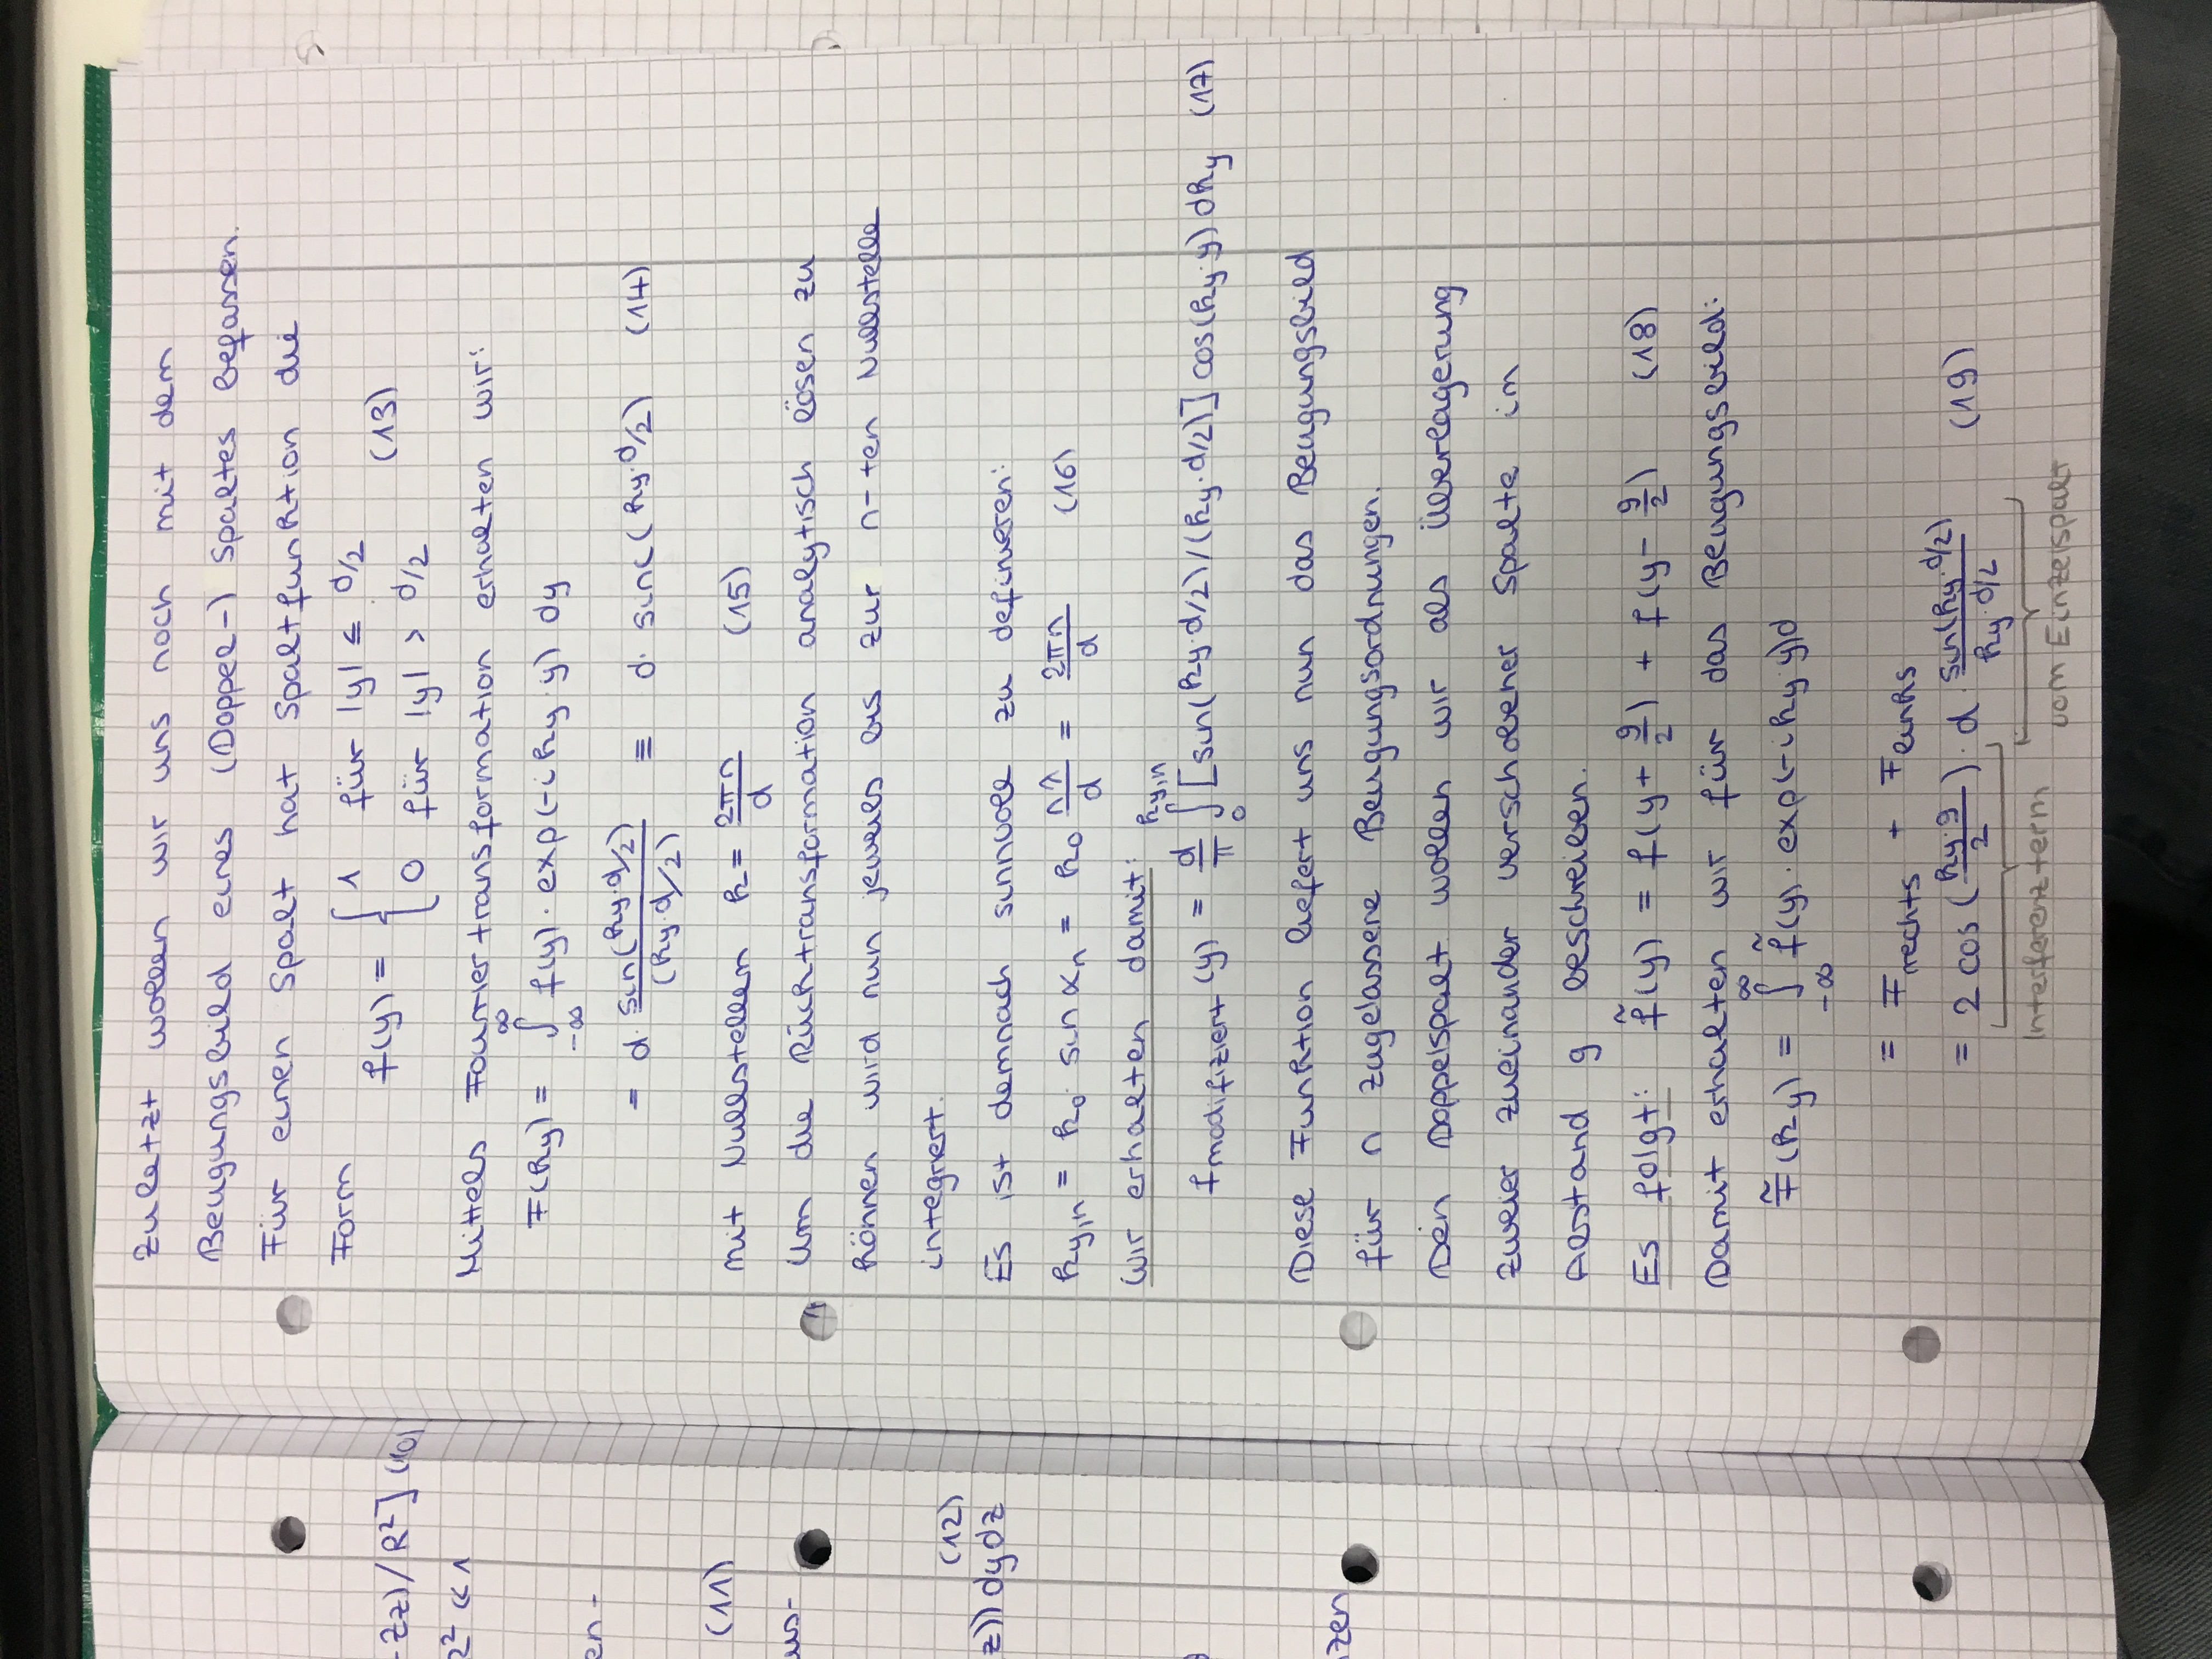 -Zz)/R²] (10)
R² ≪ 1
en-
(11)
us-
(12)
z)) dy dz
zen
Zuletzt wollen wir uns noch mit dem
Beugungsbild eines (Doppel-) Spaltes befassen.
Für einen Spalt hat Spaltfunktion die
Form f(y) = { 1 für |y| ≤ d/2
0 für |y| > d/2 (13)
Mittels Fouriertransformation erhalten wir:
F(ky) = ∫_{-∞}^{∞} f(y) · exp(-i ky · y) dy
= d · sin(ky·d/2) / (ky·d/2) ≡ d · sinc(ky·d/2) (14)
mit Nullstellen k = 2πn/d (15)
Um die Rücktransformation analytisch lösen zu
können wird nun jeweils bis zur n-ten Nullstelle
integriert.
Es ist demnach sinnvoll zu definieren:
ky,n = k₀ · sin αn = k₀ nλ/d = 2πn/d (16)
Wir erhalten damit:
f_modifiziert (y) = d/π ∫_0^{ky,n} [sin(ky·d/2)/(ky·d/2)] cos(ky·y) dky (17)
Diese Funktion liefert uns nun das Beugungsbild
für n zugelassene Beugungsordnungen.
Den Doppelspalt wollen wir als Überlagerung
zweier zueinander verschobener Spalte im
Abstand g beschreiben.
Es folgt: f̃(y) = f(y + g/2) + f(y - g/2) (18)
Damit erhalten wir für das Beugungsbild:
F̃(ky) = ∫_{-∞}^{∞} f̃(y) · exp(-i ky y)d
= F_rechts + F_links
= 2 cos(ky·g/2) · d · sin(ky·d/2) / ky·d/2 (19)
Interferenzterm vom Einzelspalt